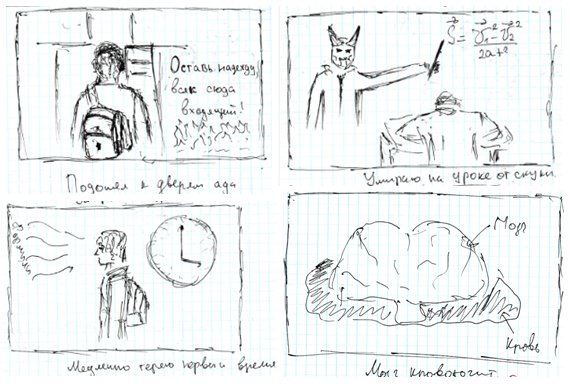 Оставь надежду,
всяк сюда
входящий!
Подошел к дверям ада
S = v₁² - v₂² / 2at²
Умираю на уроке от скуки
Медленно теряю нервы и время
Мозг
Кровь
Мозг кровоточит